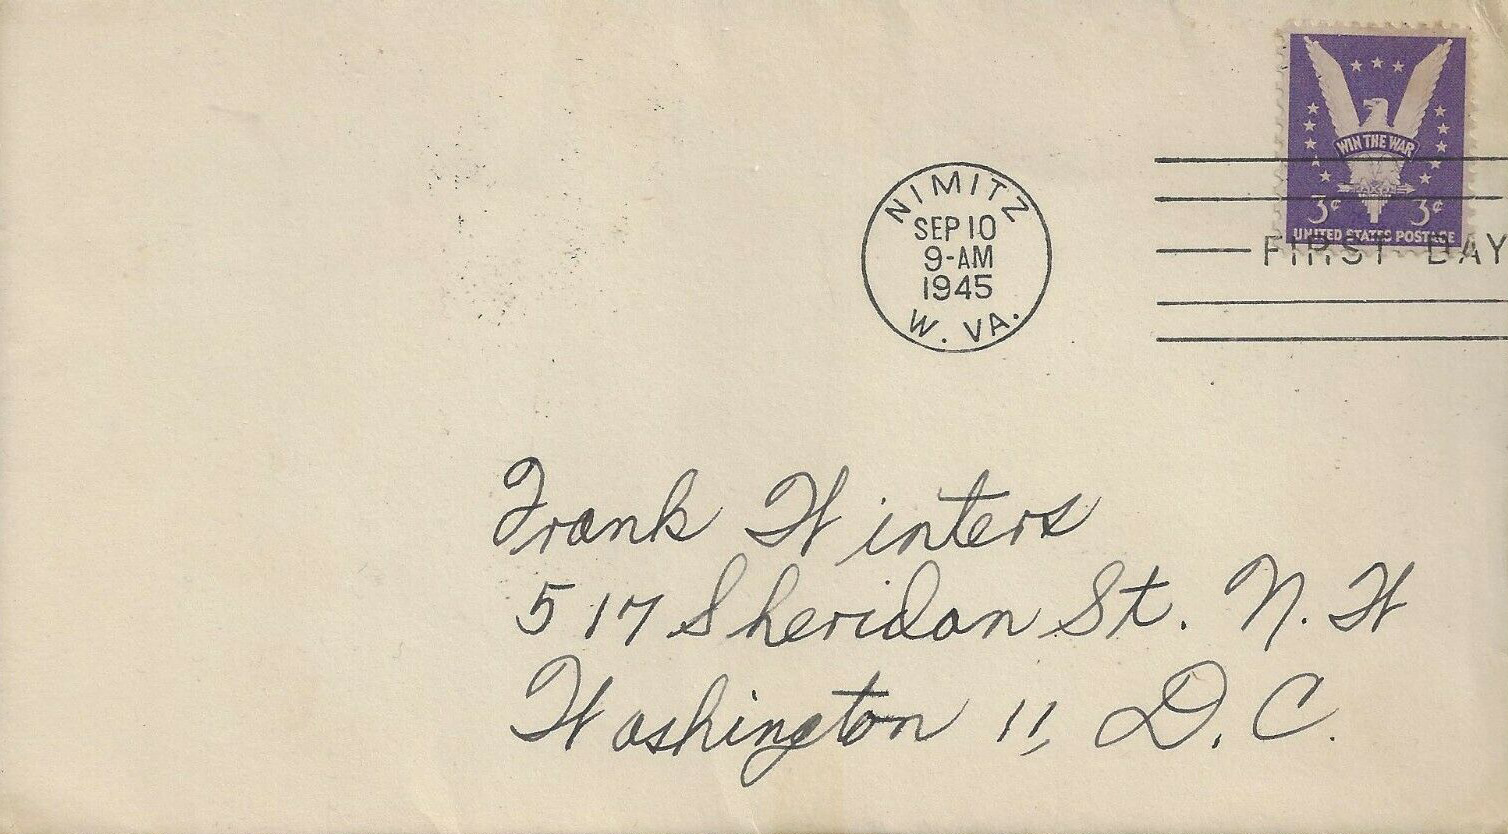 WIN THE WAR
3¢ 3¢
UNITED STATES POSTAGE
NIMITZ
SEP 10
9-AM
1945
W. VA.
FIRST DAY
Frank Winters
517 Sheridan St. N. W
Washington 11, D. C.